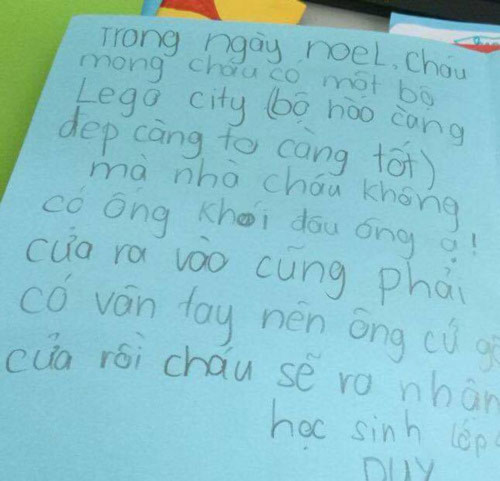 Trong ngày noel, cháu
mong cháu có một bộ
Lego city (bộ nào càng
đẹp càng to càng tốt)
mà nhà cháu không
có ống khói đâu ông ạ!
cửa ra vào cũng phải
có vân tay nên ông cứ
cửa rồi cháu sẽ ra nhận
học sinh lớp
DUY